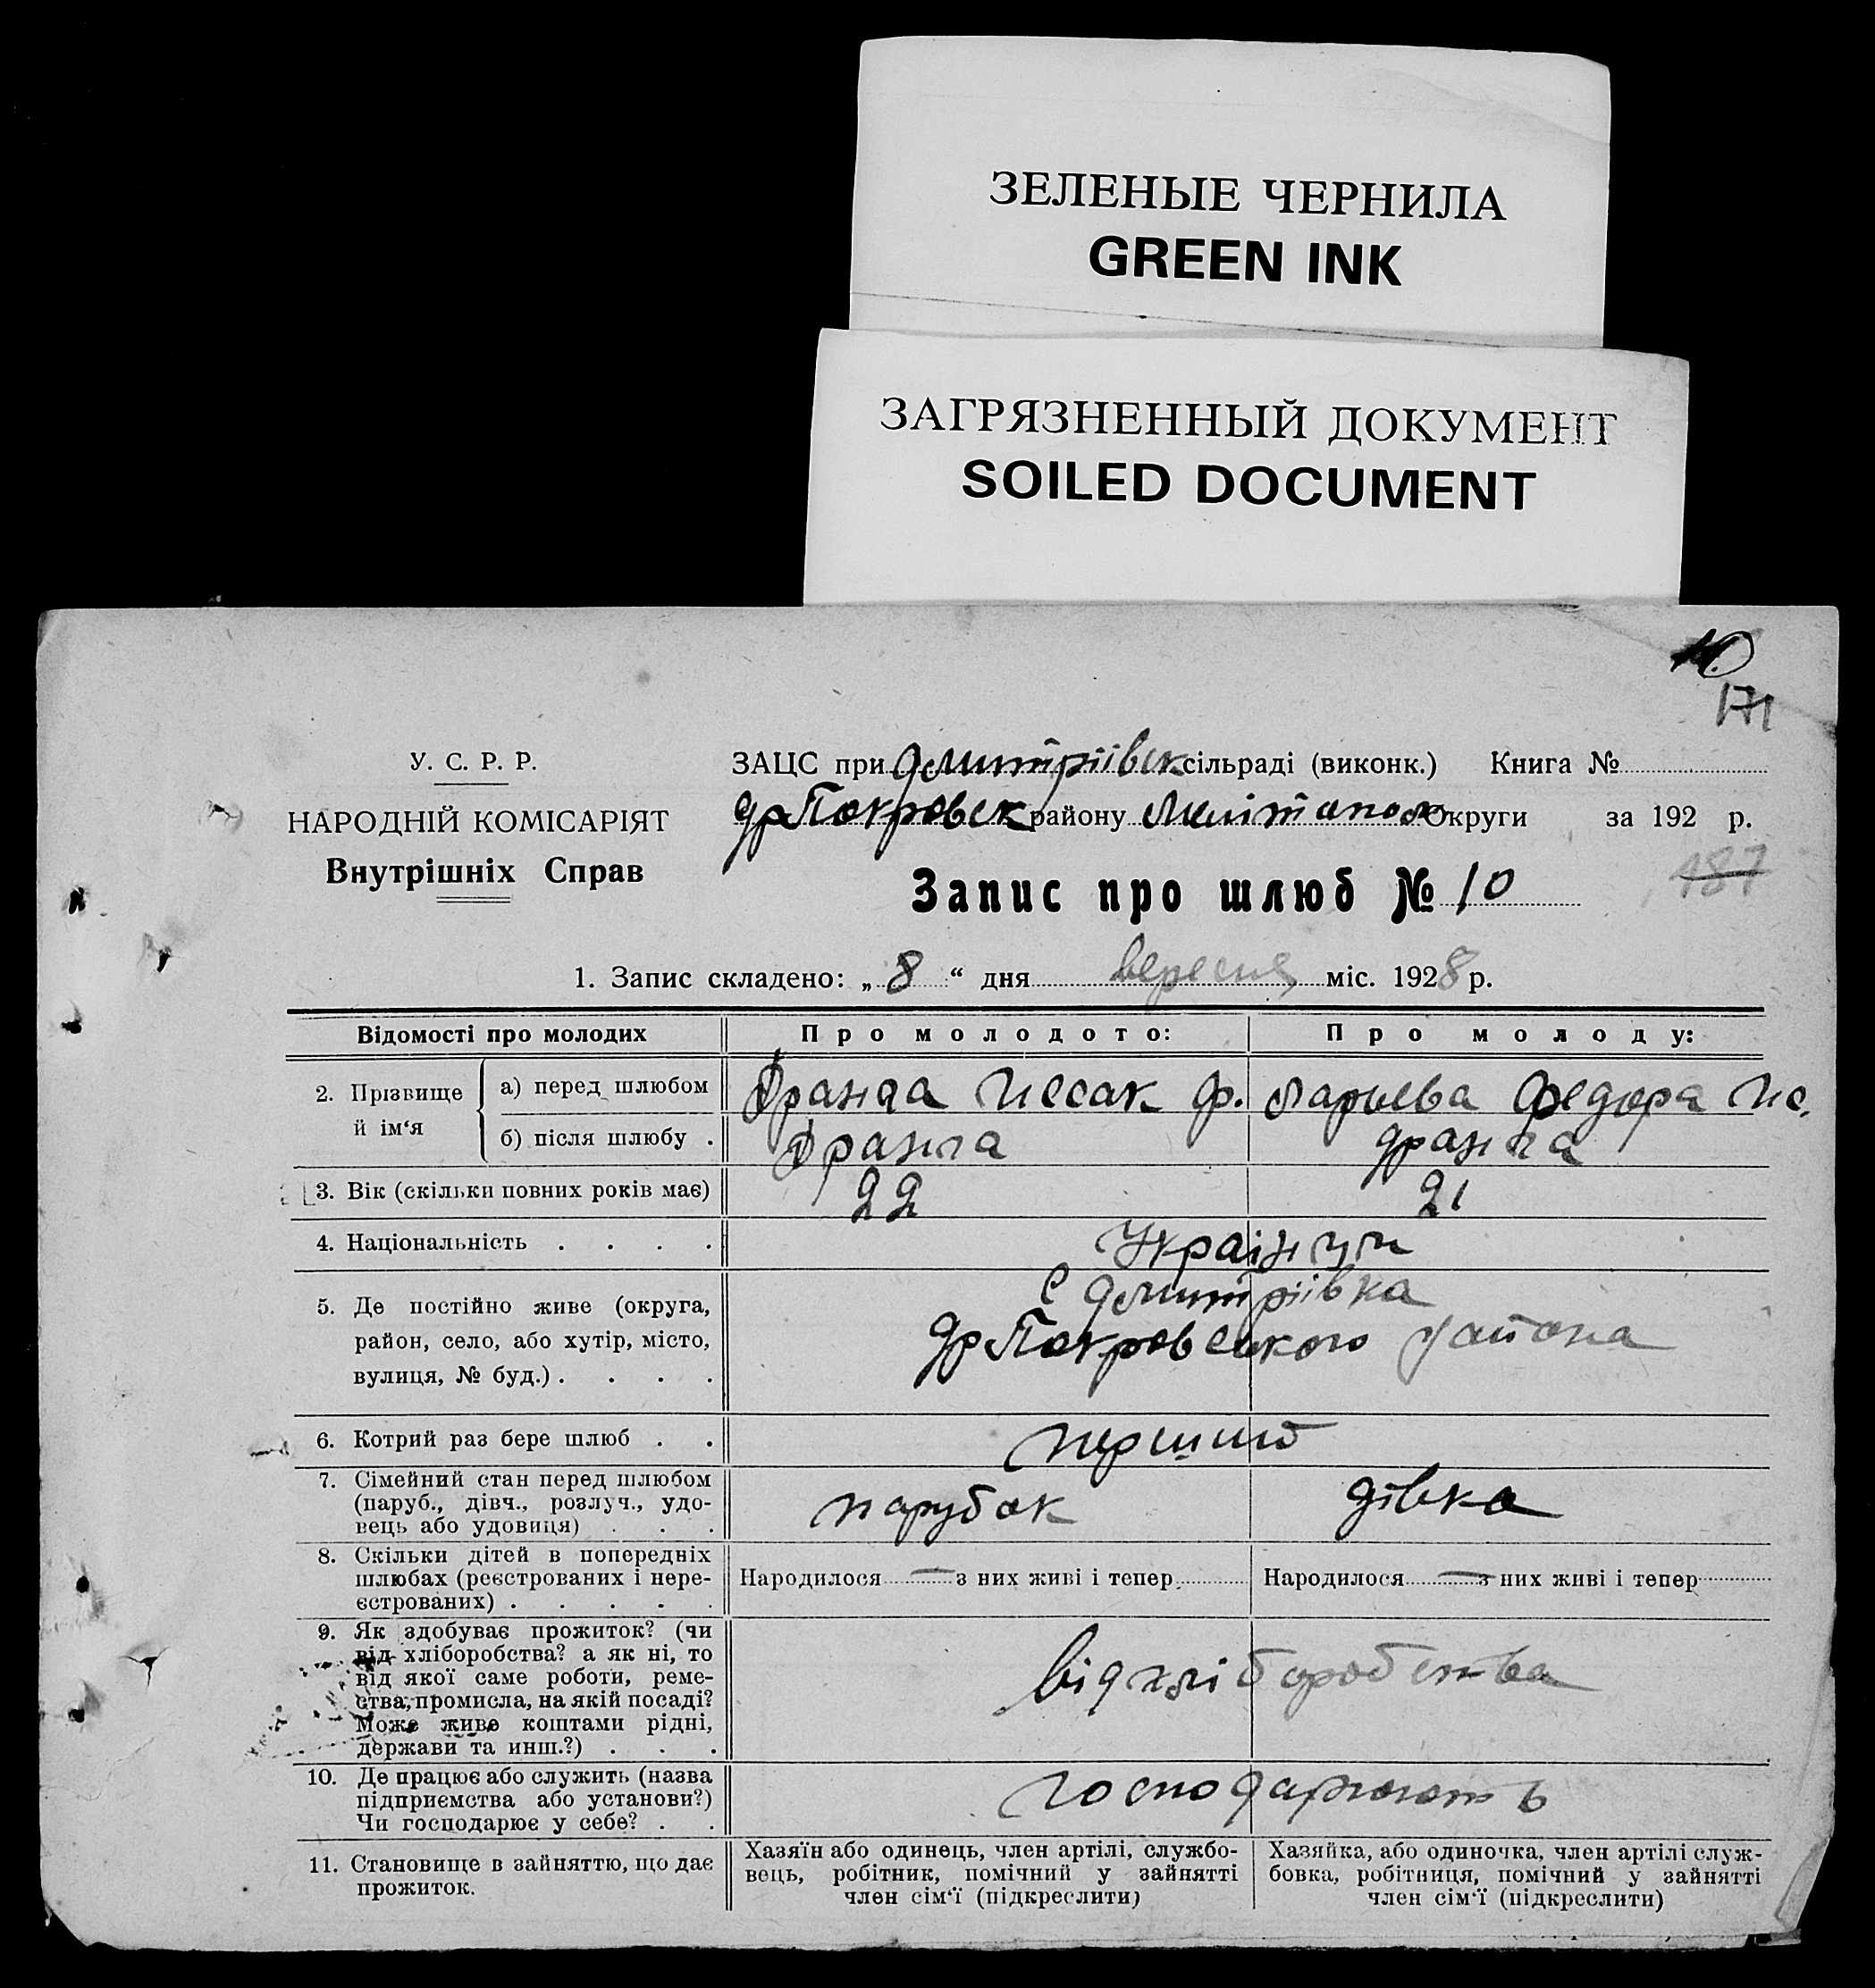 ЗЕЛЕНЫЕ ЧЕРНИЛА
GREEN INK
ЗАГРЯЗНЕННЫЙ ДОКУМЕНТ
SOILED DOCUMENT
10
171
У. С. Р. Р.
НАРОДНІЙ КОМІСАРІЯТ
Внутрішніх Справ
ЗАЦС при Дмитріівск сільраді (виконк.) Книга №
др Покровск району Мелітополь Округи за 192 р.
187
Запис про шлюб № 10
1. Запис складено: „ 8 “ дня вересня міс. 1928 р.
Відомості про молодих
Про молодого:
Про молоду:
2. Прізвище й ім‘я
а) перед шлюбом
Дранга Иссак Ф.
Ларьева Федора Ис.
б) після шлюбу .
Дранга
Дранга
3. Вік (скільки повних років має)
22
21
4. Національність . . . .
Українци
5. Де постійно живе (округа,
район, село, або хутір, місто,
вулиця, № буд.) . . . .
с Дмитріівка
др Покровського района
6. Котрий раз бере шлюб . .
перший
7. Сімейний стан перед шлюбом
(паруб., дівч., розлуч., удо-
вець або удовиця) . . .
парубок
дівка
8. Скільки дітей в попередніх
шлюбах (реєстрованих і нере-
єстрованих) . . . . .
Народилося — з них живі і тепер
Народилося — з них живі і тепер
9. Як здобуває прожиток? (чи
від хліборобства? а як ні, то
від якої саме роботи, реме-
ства, промисла, на якій посаді?
Може живе коштами рідні,
держави та инш.?) . . .
від хліборобства
10. Де працює або служить (назва
підприємства або установи?)
Чи господарює у себе? . .
господарюють
11. Становище в зайняттю, що дає
прожиток.
Хазяїн або одинець, член артілі, службо-
вець, робітник, помічний у зайнятті
член сім‘ї (підкреслити)
Хазяйка, або одиночка, член артілі служ-
бовка, робітниця, помічний у зайнятті
член сім‘ї (підкреслити)